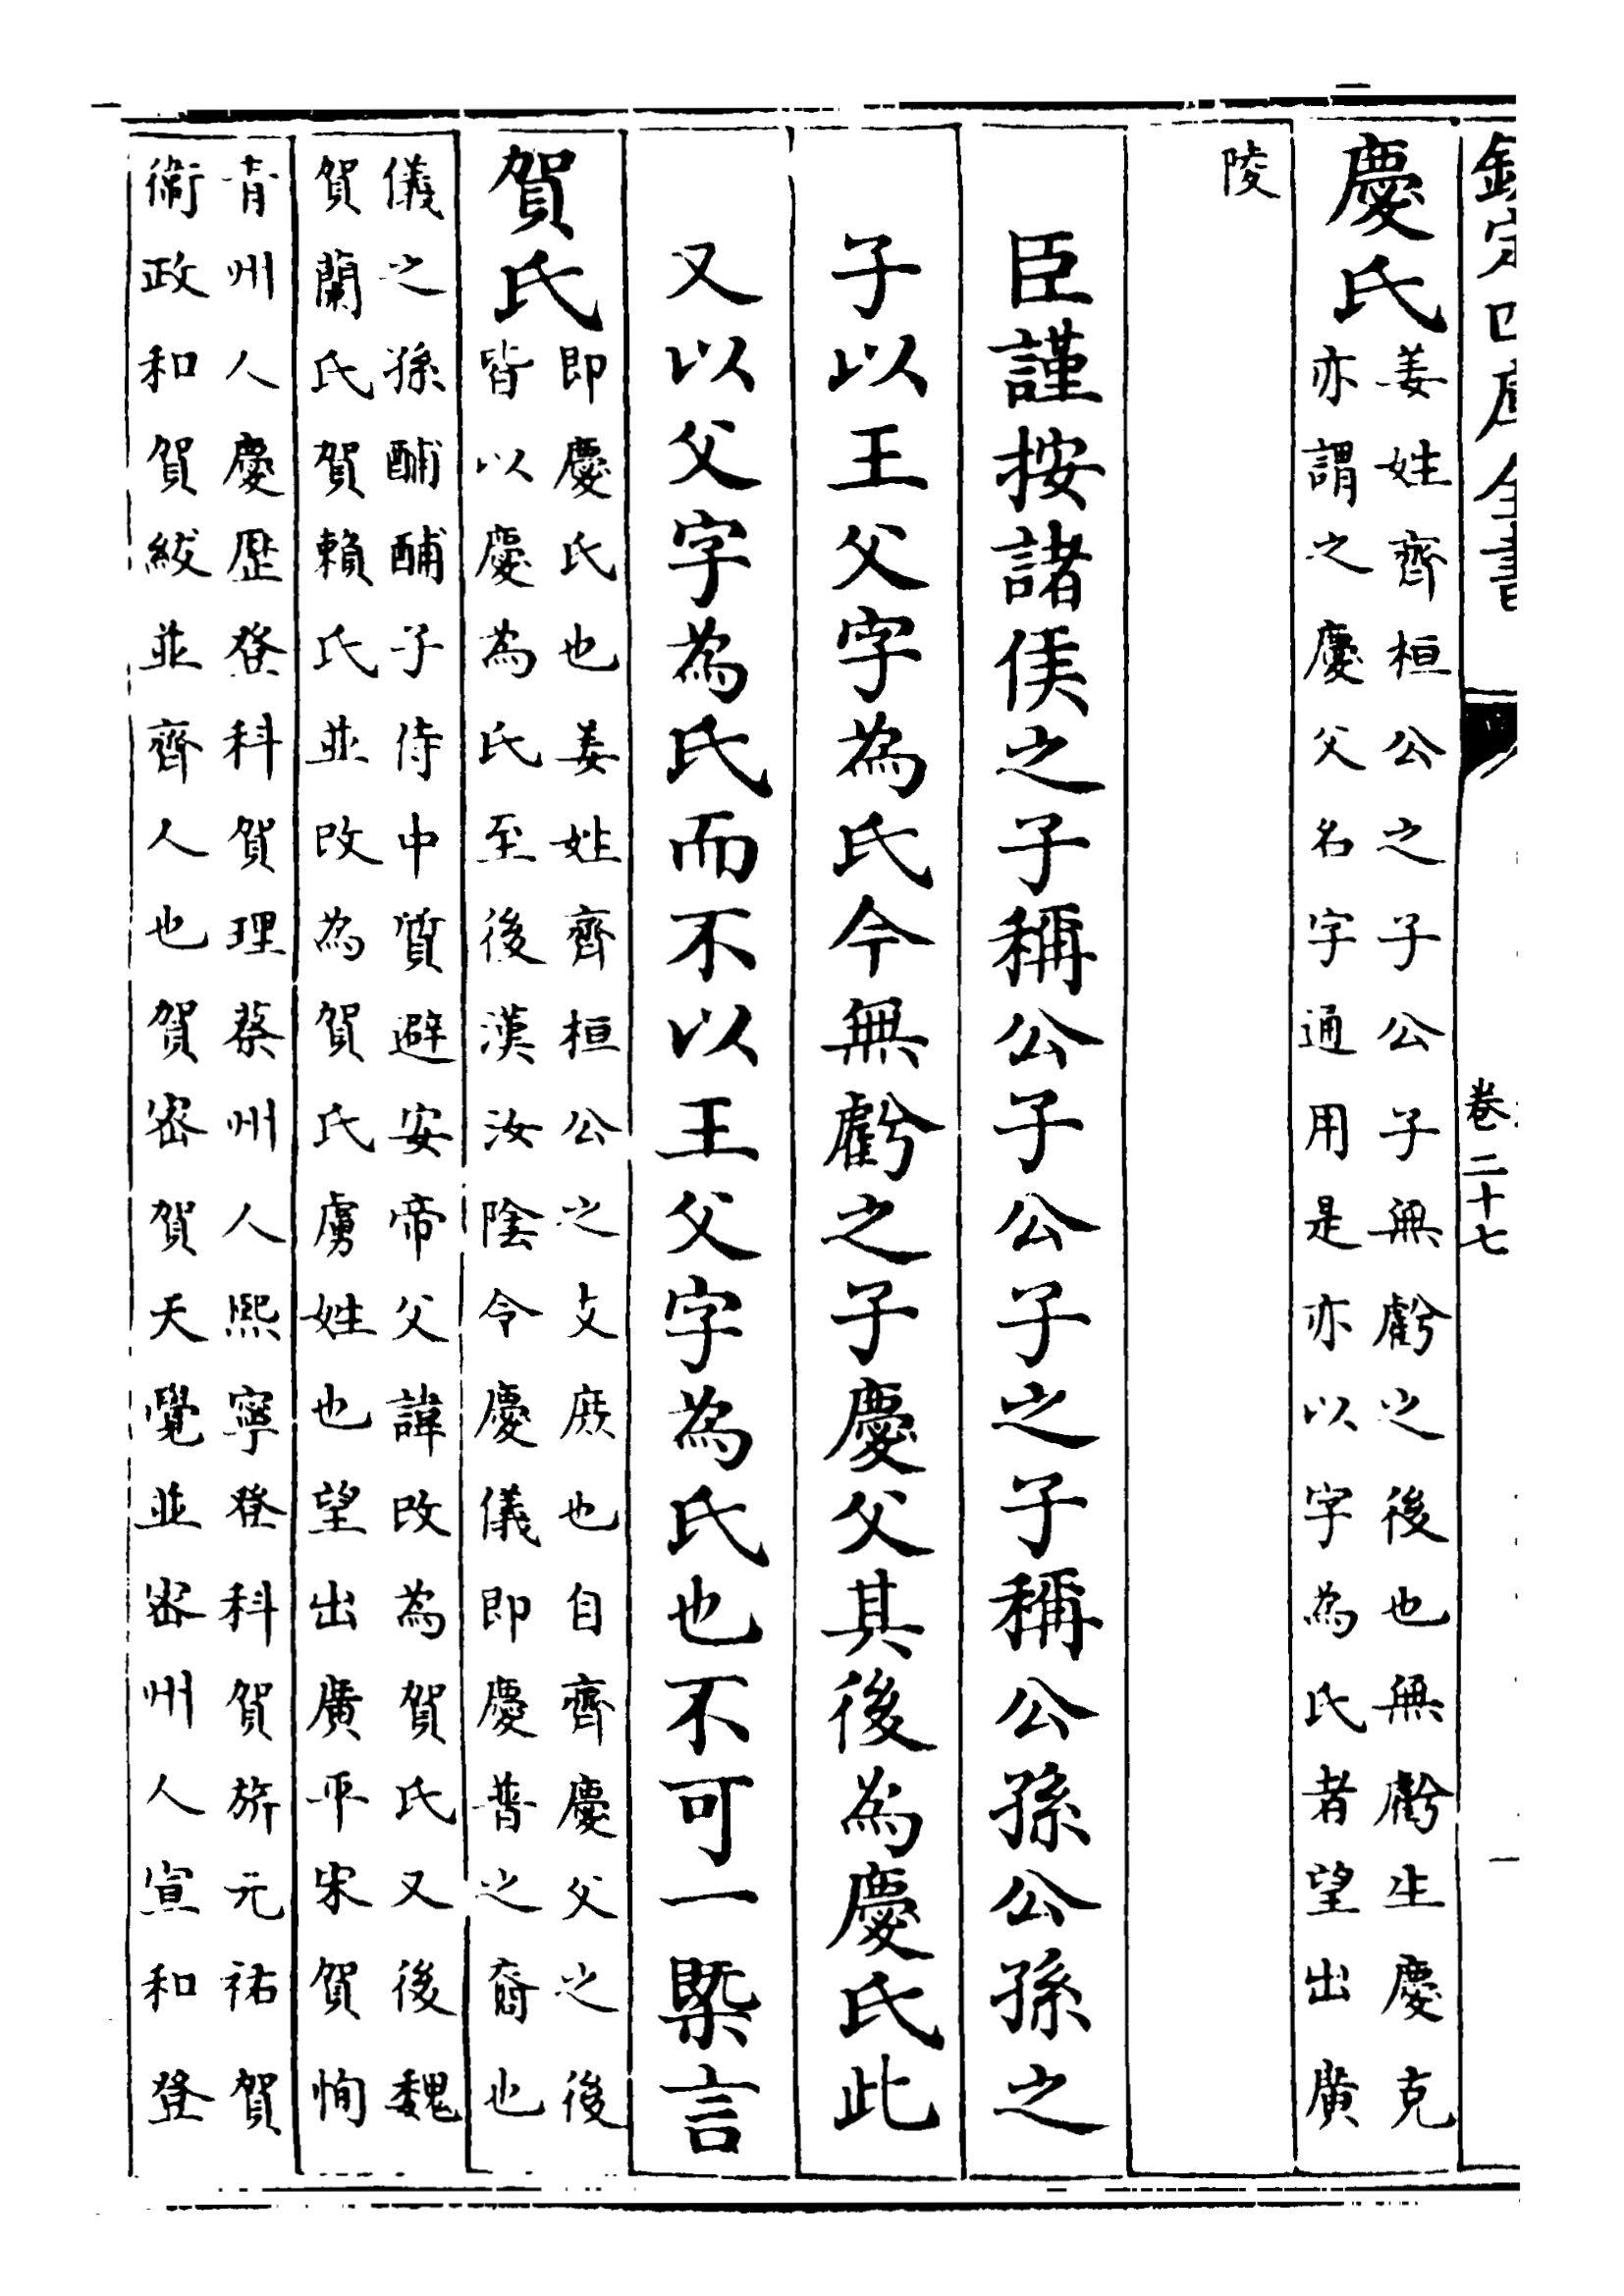 欽定四庫全書
卷二十七
慶氏
姜姓齊桓公之子公子無虧之後也無虧生慶克
亦謂之慶父名字通用是亦以字為氏者望出廣
陵
臣謹按諸侯之子稱公子公子之子稱公孫公孫之
子以王父字為氏今無虧之子慶父其後為慶氏此
又以父字為氏而不以王父字為氏也不可一槩言
賀氏
即慶氏也姜姓齊桓公之支庶也自齊慶父之後
皆以慶為氏至後漢汝陰令慶儀即慶普之裔也
儀之孫酺酺子侍中質避安帝父諱改為賀氏又後魏
賀蘭氏賀賴氏並改為賀氏虜姓也望出廣平宋賀恂
青州人慶歷登科賀理蔡州人熙寧登科賀旂元祐賀
術政和賀紱並齊人也賀密賀天覺並密州人宣和登